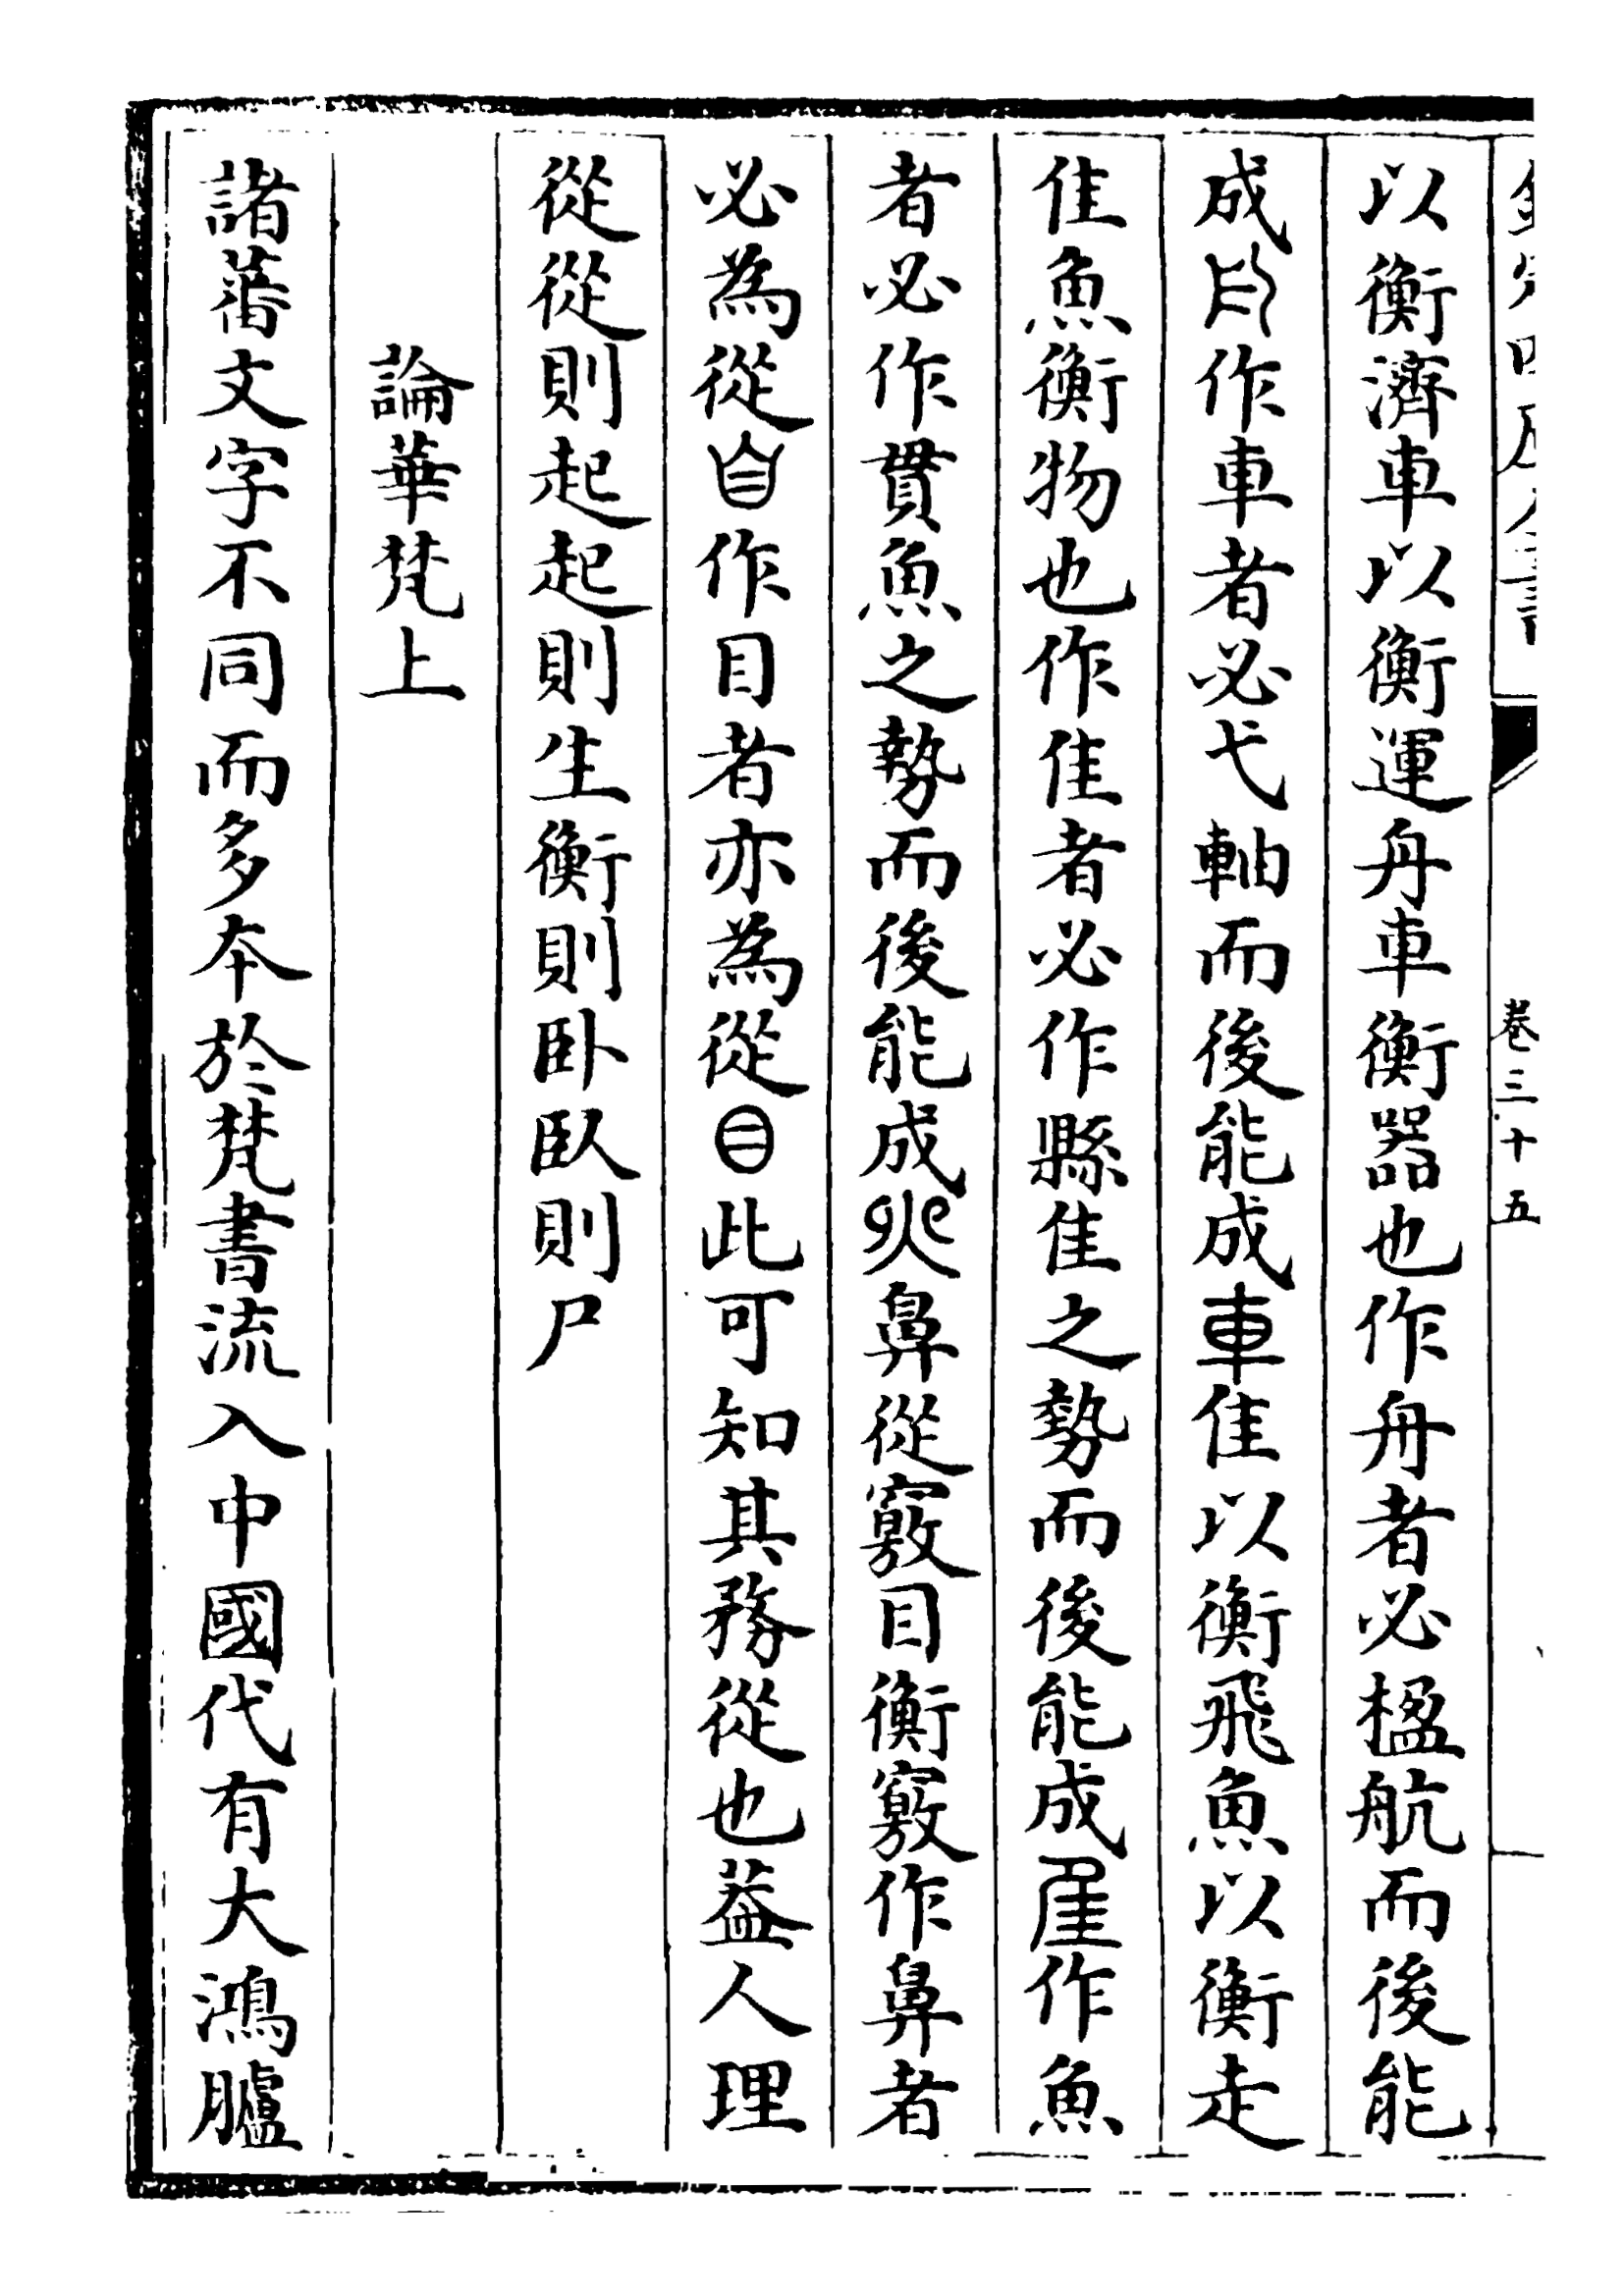 卷三十五
以衡濟車以衡運舟車衡器也作舟者必楹航而後能
成作車者必弋軸而後能成車隹以衡飛魚以衡走
隹魚衡物也作隹者必作縣隹之勢而後能成作魚
者必作貫魚之勢而後能成鼻從竅目衡竅作鼻者
必為從作目者亦為從此可知其務從也葢人理
從從則起起則生衡則卧臥則尸
論華梵上
諸蕃文字不同而多本於梵書流入中國代有大鴻臚